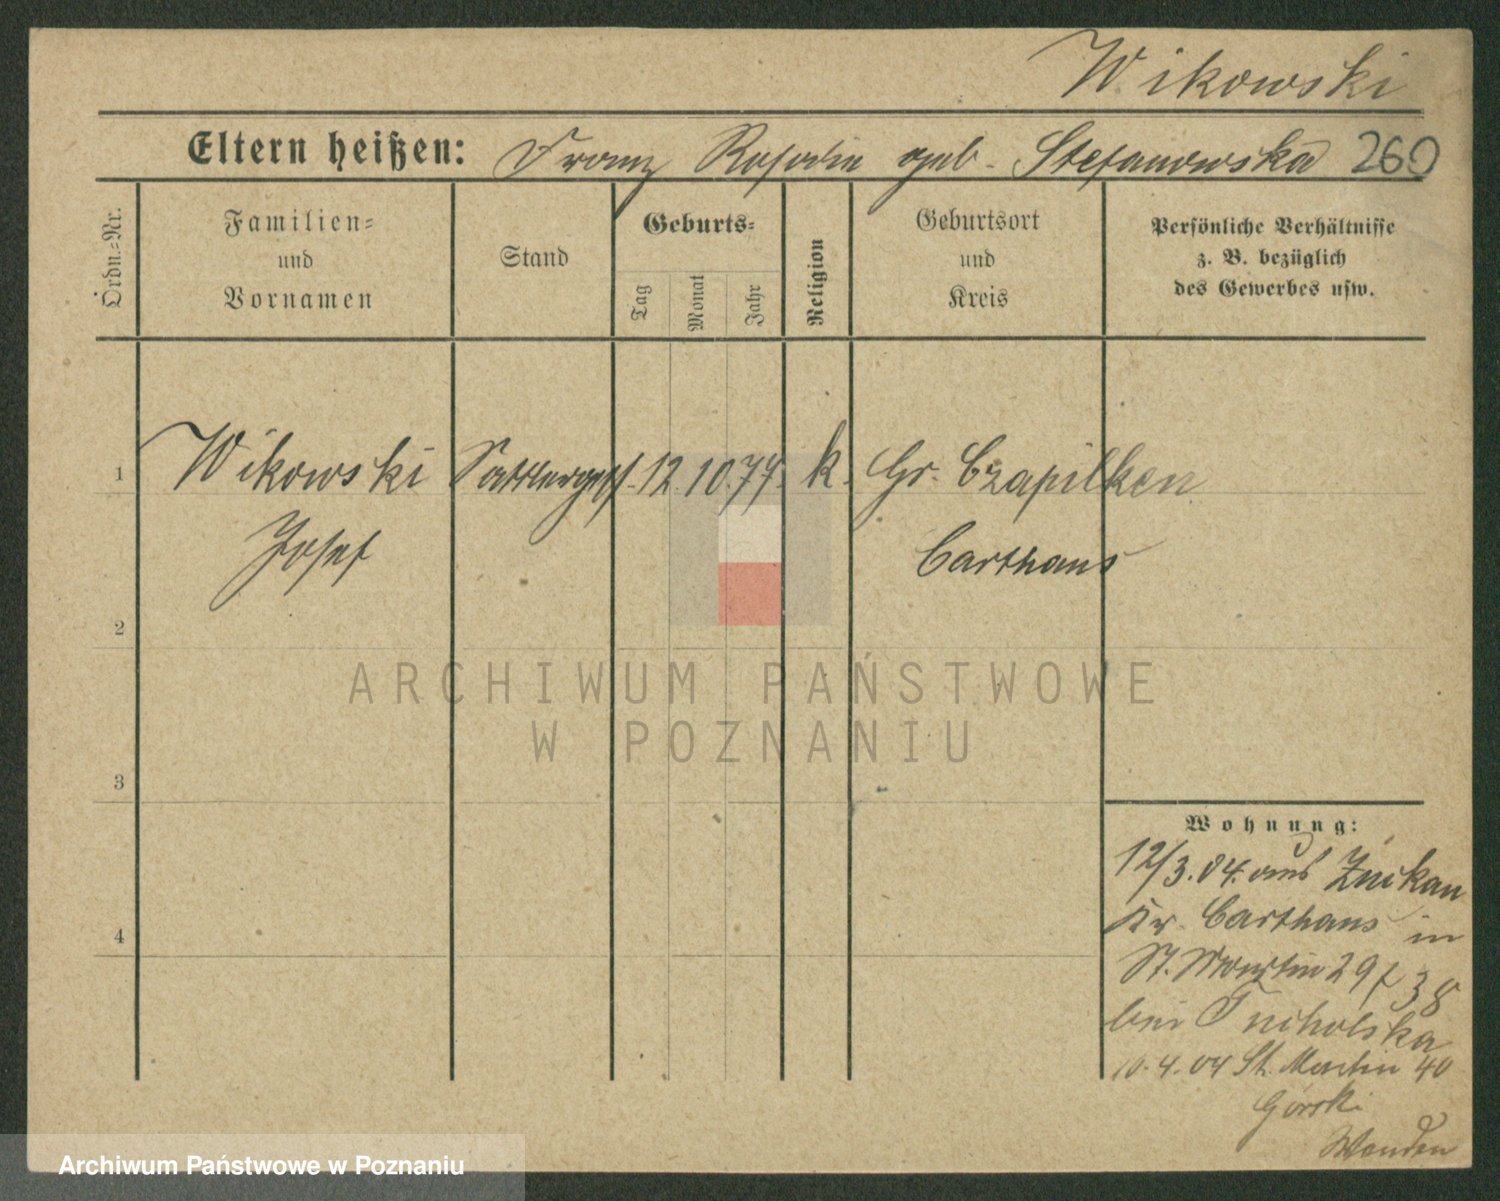 Wikowski
Eltern heißen: Franz Rosalie geb. Stefanowska 260
Ordn.-Nr.
Familien-
und
Vornamen
Stand
Geburts-
Tag
Monat
Jahr
Religion
Geburtsort
und
Kreis
Persönliche Verhältnisse
z. B. bezüglich
des Gewerbes usw.
1 Wikowski Sattlerges. 12. 10. 77. k. Gr. Czapilken
Josef Carthaus
2
3
4
Wohnung:
12/3.04. aus
Kr. Carthaus in
St. Martin 29 38
bei Tucholska
10.4.04 St. Martin 40
Górski
ARCHIWUM PAŃSTWOWE
W POZNANIU
Archiwum Państwowe w Poznaniu